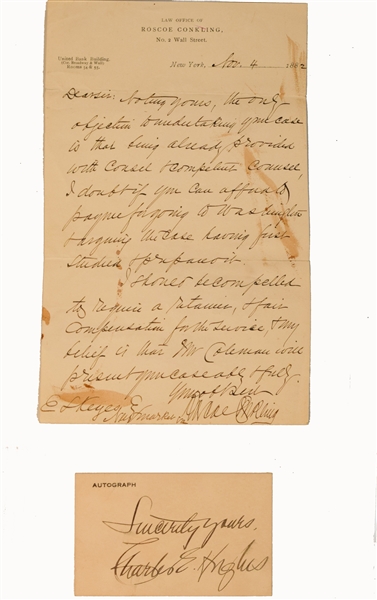 LAW OFFICE OF
ROSCOE CONKLING,
No. 2 Wall Street.
United Bank Building,
New York, Nov. 4 1882
Dear sir: Noting yours, the only
objection to undertaking your case
is that being already provided
with competent counsel,
I doubt if you can afford to
pay me for going to Washington
& arguing the case having first
studied & prepared it.
I should be compelled
to require a retainer, & fair
compensation for the service, & my
belief is that Mr Coleman will
present your case ably & fully.
Roscoe Conkling
AUTOGRAPH
Sincerely yours,
Charles E. Hughes